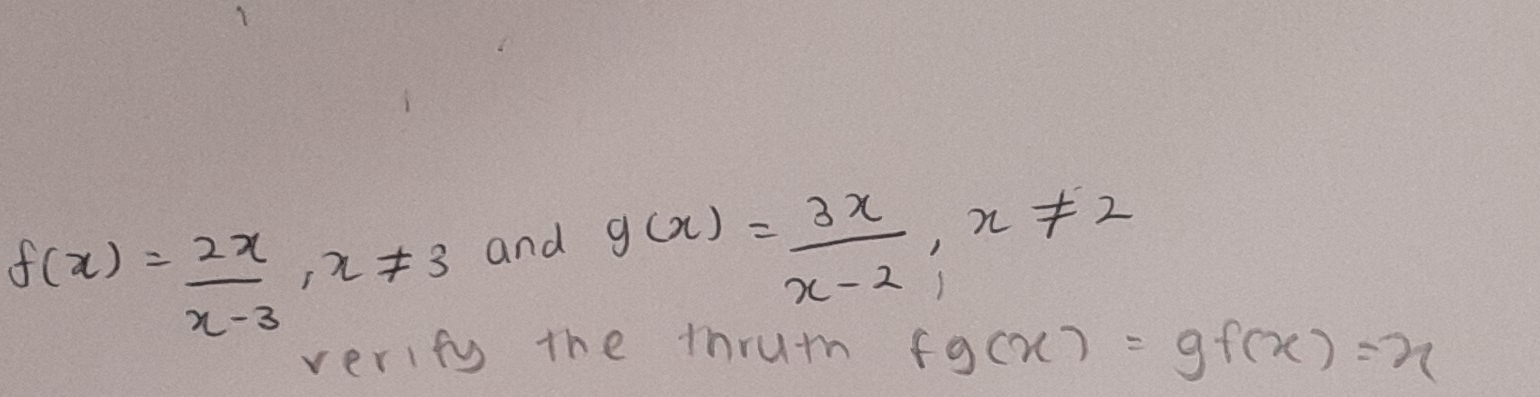 f(x) = 2x/x-3 , x ≠ 3 and g(x) = 3x/x-2 , x ≠ 2
verify the thruth fg(x) = gf(x) = x